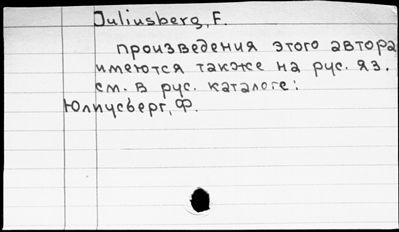 Juliusberg, F.
произведения этого автора
имеются также на рус. яз.
см. в рус. каталоге:
Юлиусберг, Ф.